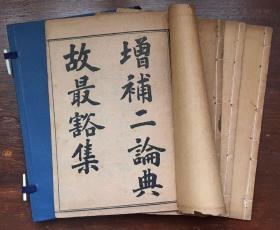 增補二論典
故最豁集